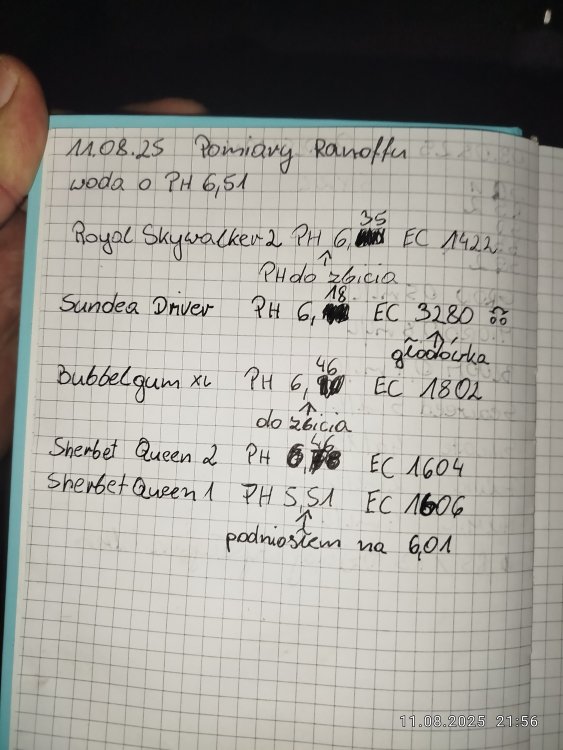 11.08.25 Pomiary Ranoffu
woda o PH 6,51
35
Royal Skywalker 2 PH 6, EC 1422
↑
PH do zbicia
18
Sundea Driver PH 6, EC 3280
↑
głodówka
46
Bubbelgum XL PH 6, EC 1802
↑
do zbicia
46
Sherbet Queen 2 PH 6, EC 1604
Sherbet Queen 1 PH 5,51 EC 1606
↑
podniosłem na 6,01
11.08.2025 21:56